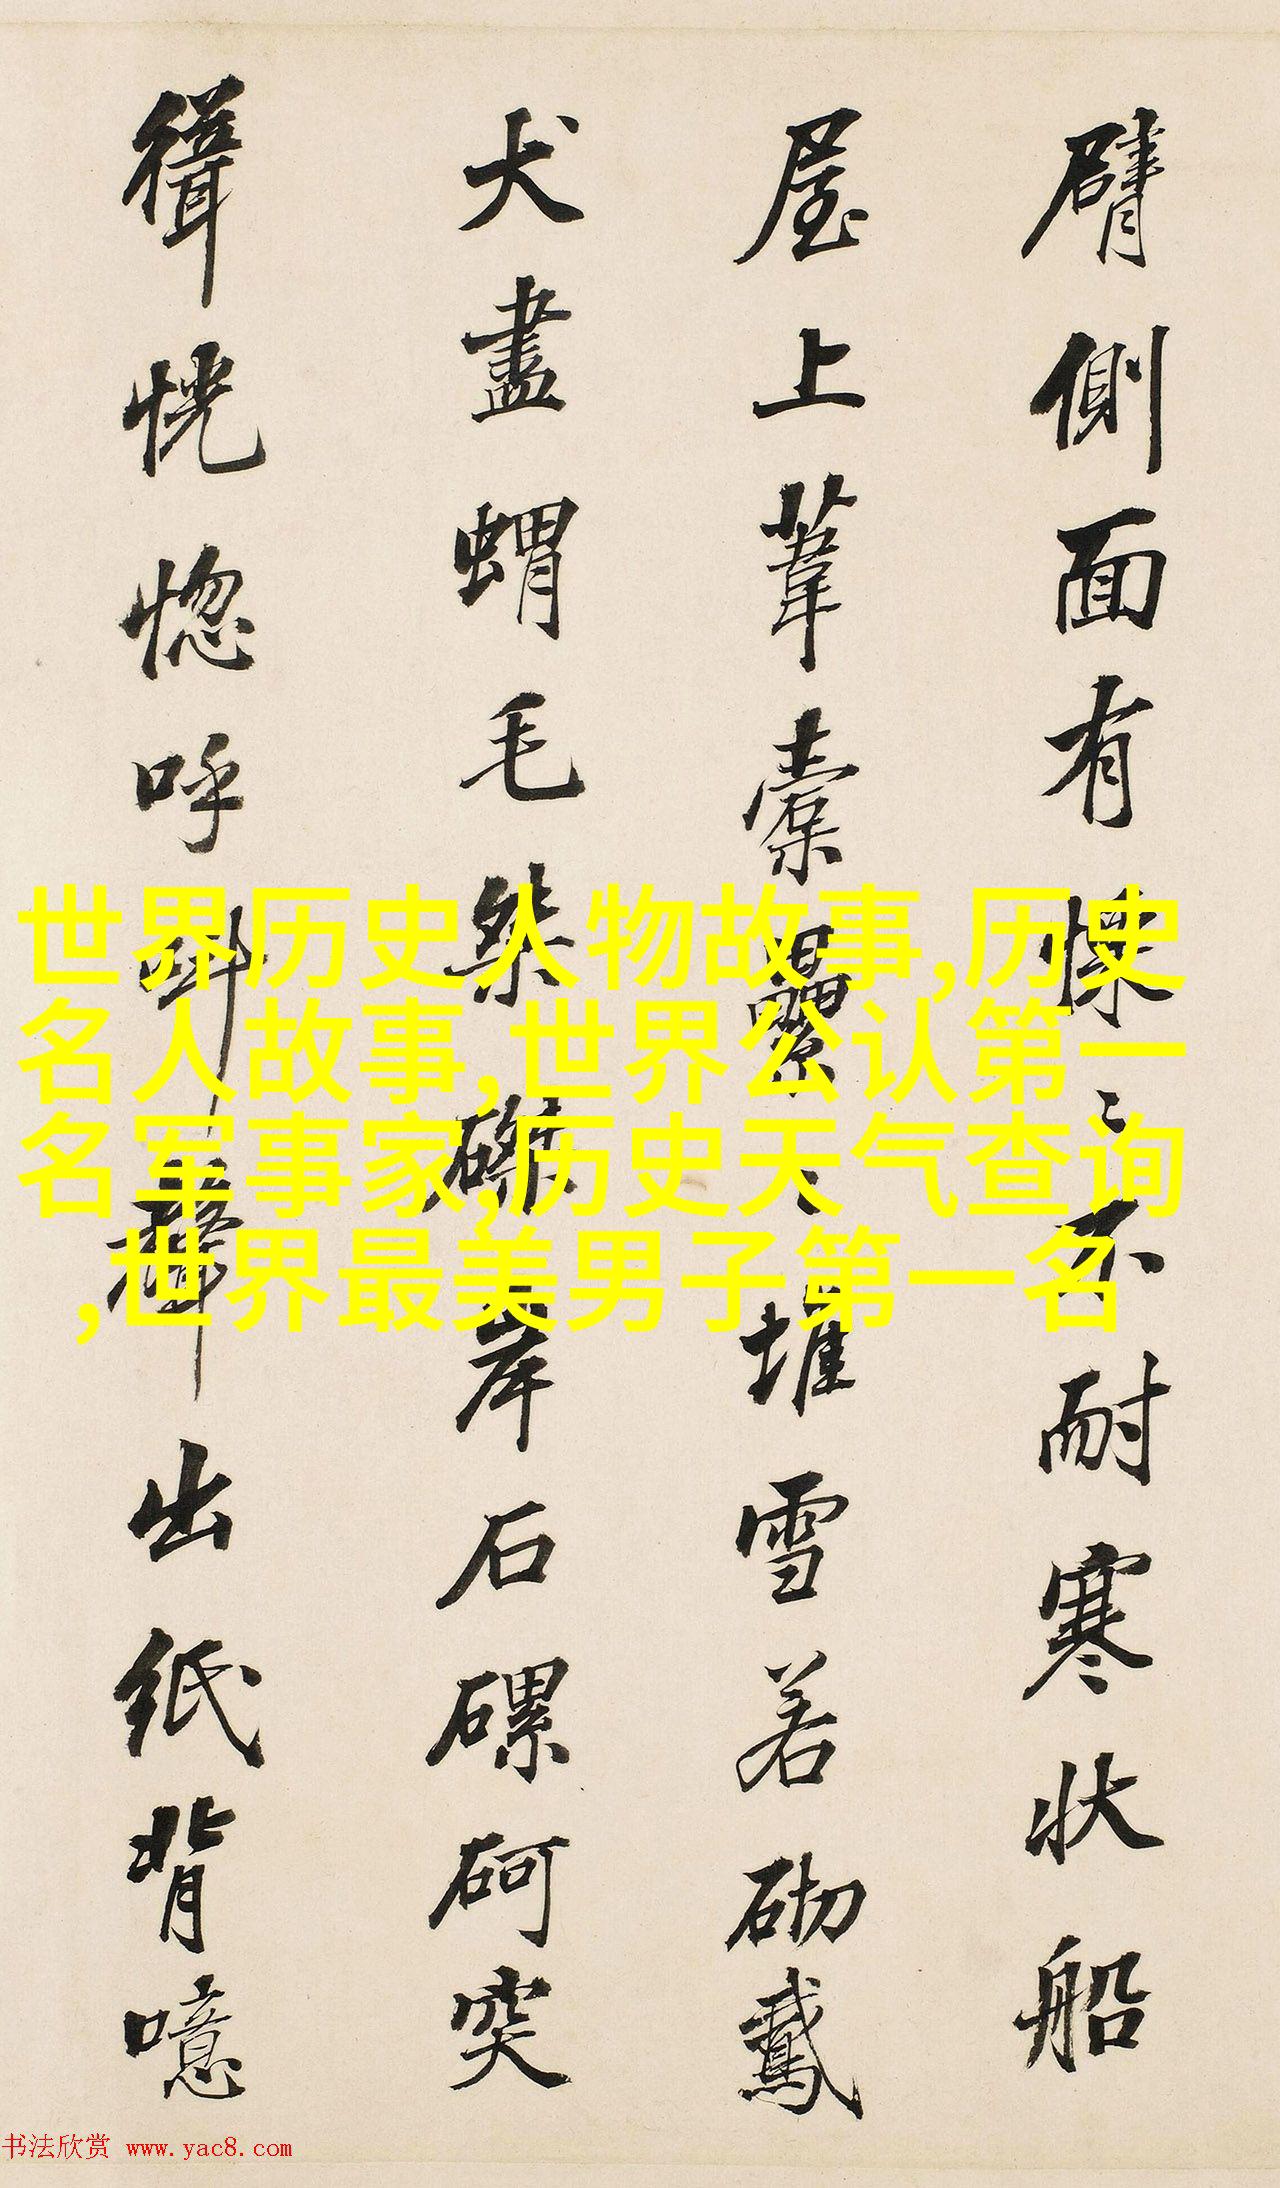 臂側面有慄〻不耐寒状船
屋上葦橐纍〻堆雪若砌
犬盡蝟毛桀磔岸石磥砢突
恍惚呼叫聲出紙背噫
世界历史人物故事,历史
名人故事,世界公认第一
名军事家,历史天气查询
,世界最美男子第一名
书法欣赏 www.yac8.com